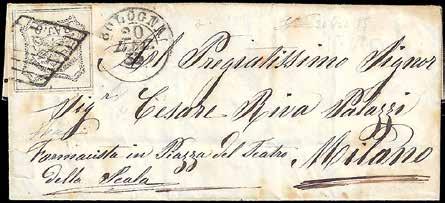 BOLOGNA
20
Al Pregiatissimo Signor
Sig.r Cesare Riva Palazzi
Farmacista in Piazza del Teatro
della Scala Milano